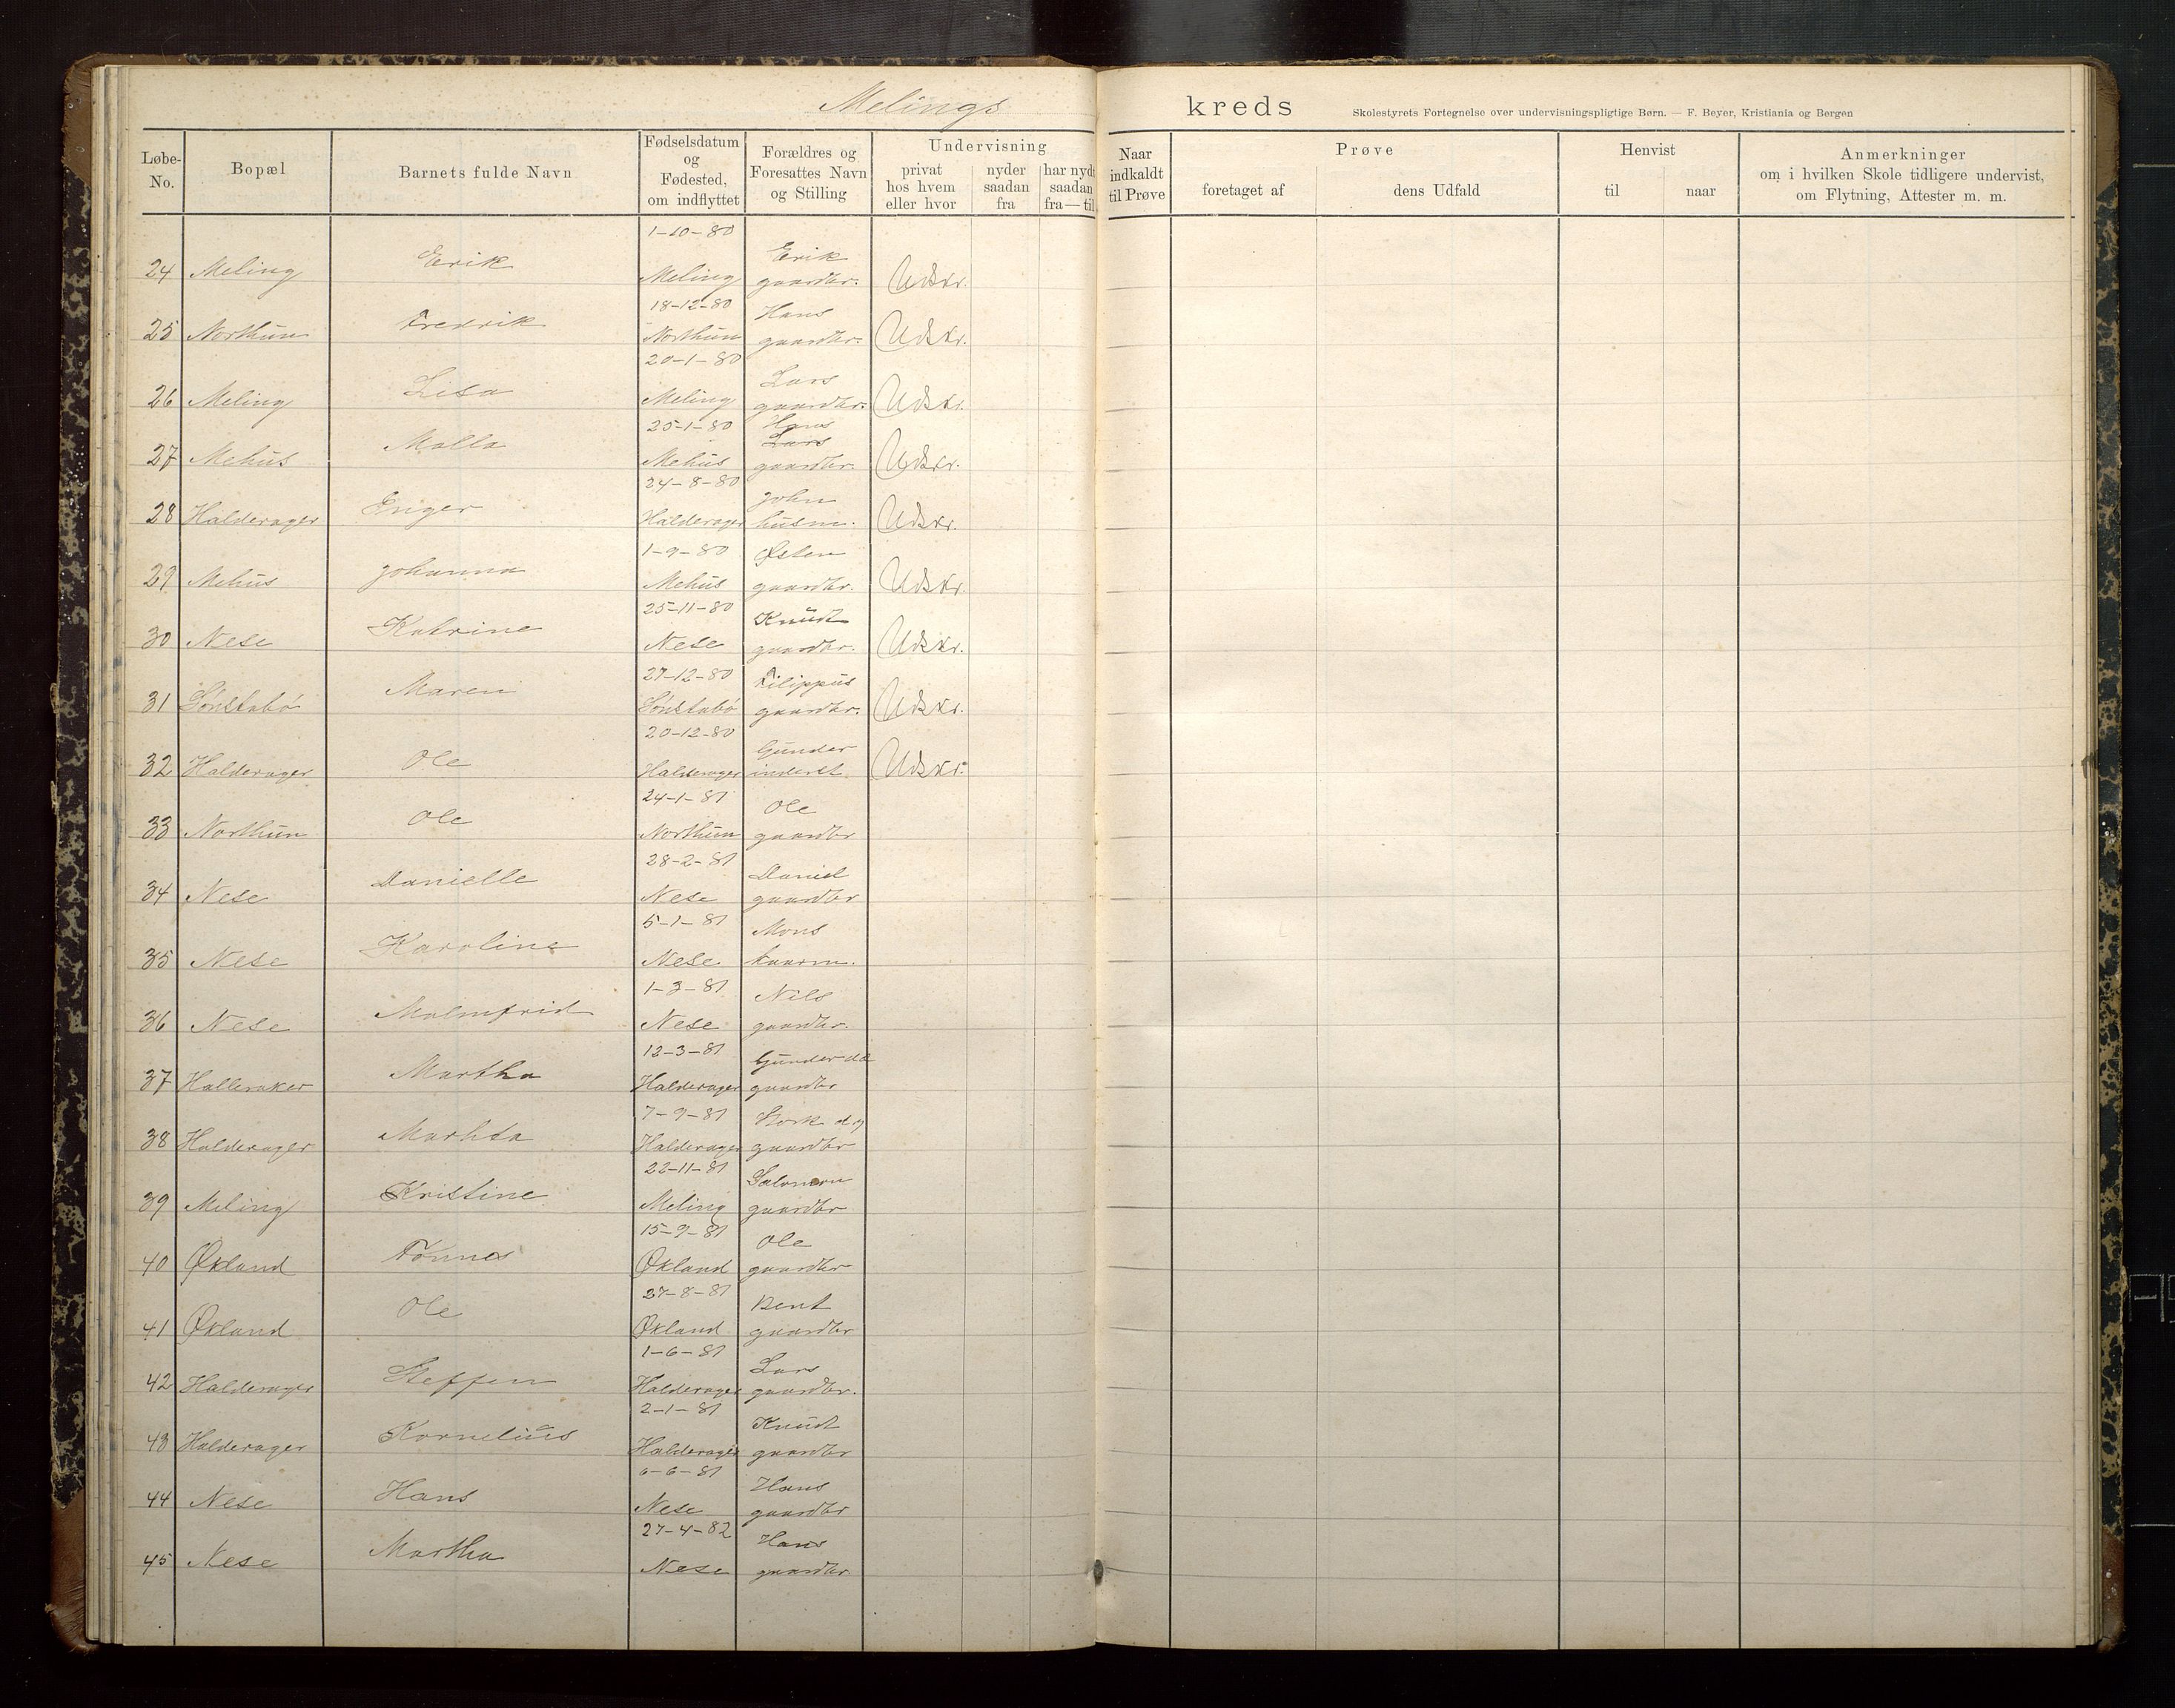 Melings kreds
Skolestyrets Fortegnelse over undervisningspligtige Børn. — F. Beyer, Kristiania og Bergen
Løbe-No. Bopæl Barnets fulde Navn Fødselsdatum og Fødested, om indflyttet Forældres og Foresattes Navn og Stilling Undervisning privat hos hvem eller hvor nyder saadan fra har nydt saadan fra—til Naar indkaldt til Prøve Prøve foretaget af dens Udfald Henvist til naar Anmerkninger om i hvilken Skole tidligere undervist, om Flytning, Attester m. m.
24 Meling Erik 1-10-80 Meling Erik gaardbr. Udskr.
25 Northun Fredrik 18-12-80 Northun Hans gaardbr. Udskr.
26 Meling Lisa 20-1-80 Meling Lars gaardbr. Udskr.
27 Mehus Malla 25-1-80 Mehus Hans Lars gaardbr. Udskr.
28 Halderager Enger 24-8-80 Halderager John husm. Udskr.
29 Mehus Johanna 1-9-80 Mehus Østen gaardbr. Udskr.
30 Nese Katrine 25-11-80 Nese Knudt gaardbr. Udskr.
31 Sønstabø Maren 27-12-80 Sønstabø Filippus gaardbr. Udskr.
32 Halderager Ole 20-12-80 Halderager Gunder inderst. Udskr.
33 Northun Ole 24-1-81 Northun Ole gaardbr
34 Nese Danielle 28-2-81 Nese Daniel gaardbr
35 Nese Karoline 5-1-81 Nese. Mons kaarm.
36 Nese Malmfrid 1-3-81 Nese Nils gaardbr.
37 Halleraker Martha 12-3-81 Halderager Gunder da gaardbr
38 Halderager Marhta 7-9-81 Halderager Stork dg gaardbr
39 Meling Kristine 22-11-81 Meling Salomon gaardbr
40 Økland Tønnes 15-9-81 Økland Ole gaardbr
41 Økland Ole 27-8-81 Økland Bent gaardbr
42 Halderager Steffen 1-6-81 Halderager Lars gaardbr.
43 Halderager Kornelius 2-1-81 Halderager Knudt gaardbr
44 Nese Hans 6-6-81 Nese Hans gaardbr
45 Nese Martha 27-4-82 Nese Hans gaardbr